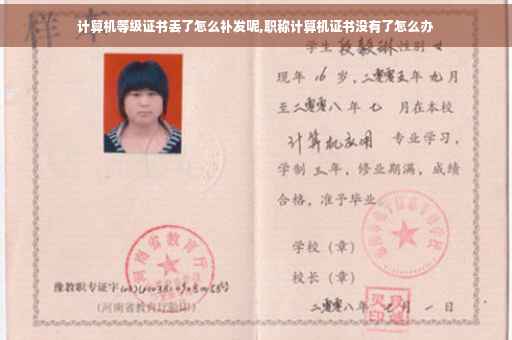 计算机等级证书丢了怎么补发呢,职称计算机证书没有了怎么办
样本
学生段毅琳性别女
现年16岁，二零零五年九月
至二零零八年七月在本校
计算机应用 专业学习，
学制三年，修业期满，成绩
合格，准予毕业
学校（章）
校长（章）
河南省教育厅
豫教职专证字
（河南省教育厅验印）
二零零八年七月一日